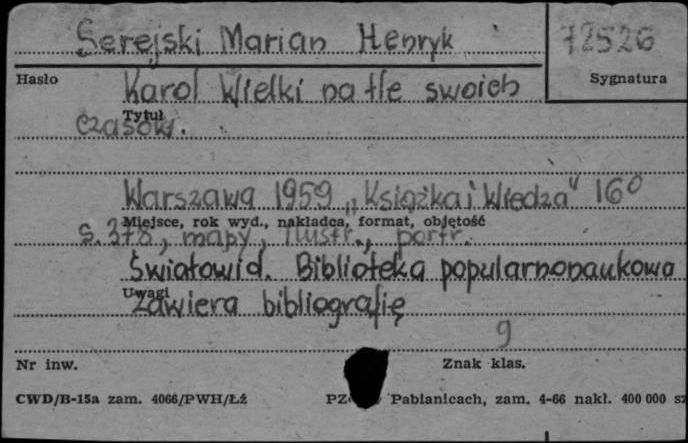 Serejski Marian Henryk 72526
Hasło Sygnatura
Karol Wielki na tle swoich
Tytuł
czasów.
Warszawa 1959 „Książka i Wiedza" 16°
Miejsce, rok wyd., nakładca, format, objętość
s. 378, mapy, ilustr., portr.
Światowid. Biblioteka popularnonaukowa
Uwagi
Zawiera bibliografię
9
Nr inw. Znak klas.
CWD/B-15a zam. 4066/PWH/Łź Pabianicach, zam. 4-66 nakł. 400 000